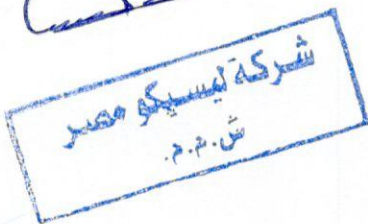 شركة ليسيكو مصر
ش.م.م.